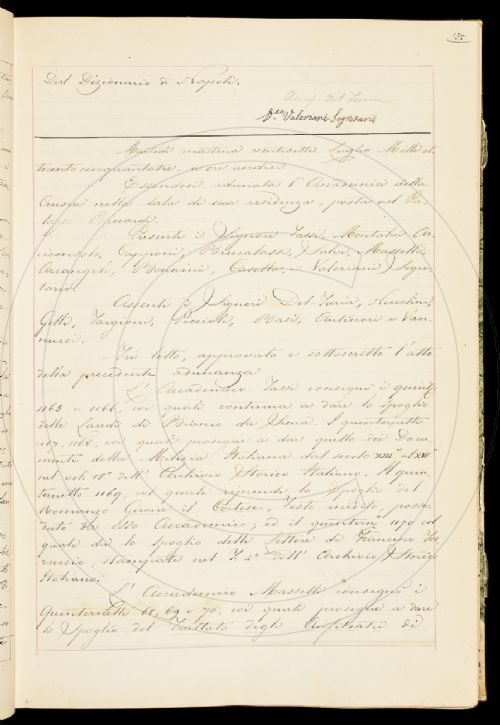 135
Dal Dizionario di Napoli.
Del Furia
Valeriani Segretario
Martedì mattina ventisette Luglio Mille ot-
tocento cinquantatre, a ore undici.
Essendosi adunata l'Accademia della
Crusca nella sala di sua residenza, posta nel Pa-
lazzo Riccardi.
Presenti i Signori Tassi, Montalvi Ar-
ciconsolo, Capponi, Bruscalassi, Salvi, Masselli,
Arcangeli, e Valeriani Segre-
tario.
Assenti i Signori Del Furia, Niccolini,
Gelli, Targioni, Puccioti, Basi, Antinori e Van-
nucci.
Fu letto, approvato e sottoscritto l'atto
della precedente adunanza
L'Accademico Tassi consegnò i quint.
1165 e 1166, coi quali continua a dare lo spoglio
delle Laudi di Bianco da Siena. I quinternetti
1167, 1168, coi quali prosegue a dar quello dei Docu-
menti della Milizia Italiana dal secolo XIII al XVI
nel vol. 15° dell'Archivio Storico Italiano. Il quin-
ternetto 1169, col quale riprende lo spoglio del
Romanzo Girone il Cortese, Testo inedito, posse-
duto da esso Accademico; ed il quintern. 1170 col
quale dà lo spoglio delle Lettere di Francesco Fer-
ruccio, stampate nel T. 4° dell'Archivio Storico
Italiano.
L'Accademico Masselli consegnò i
Quinternetti 68, 69 e 70, coi quali prosegue a dare
lo Spoglio del Trattato degli Anfiteatri di